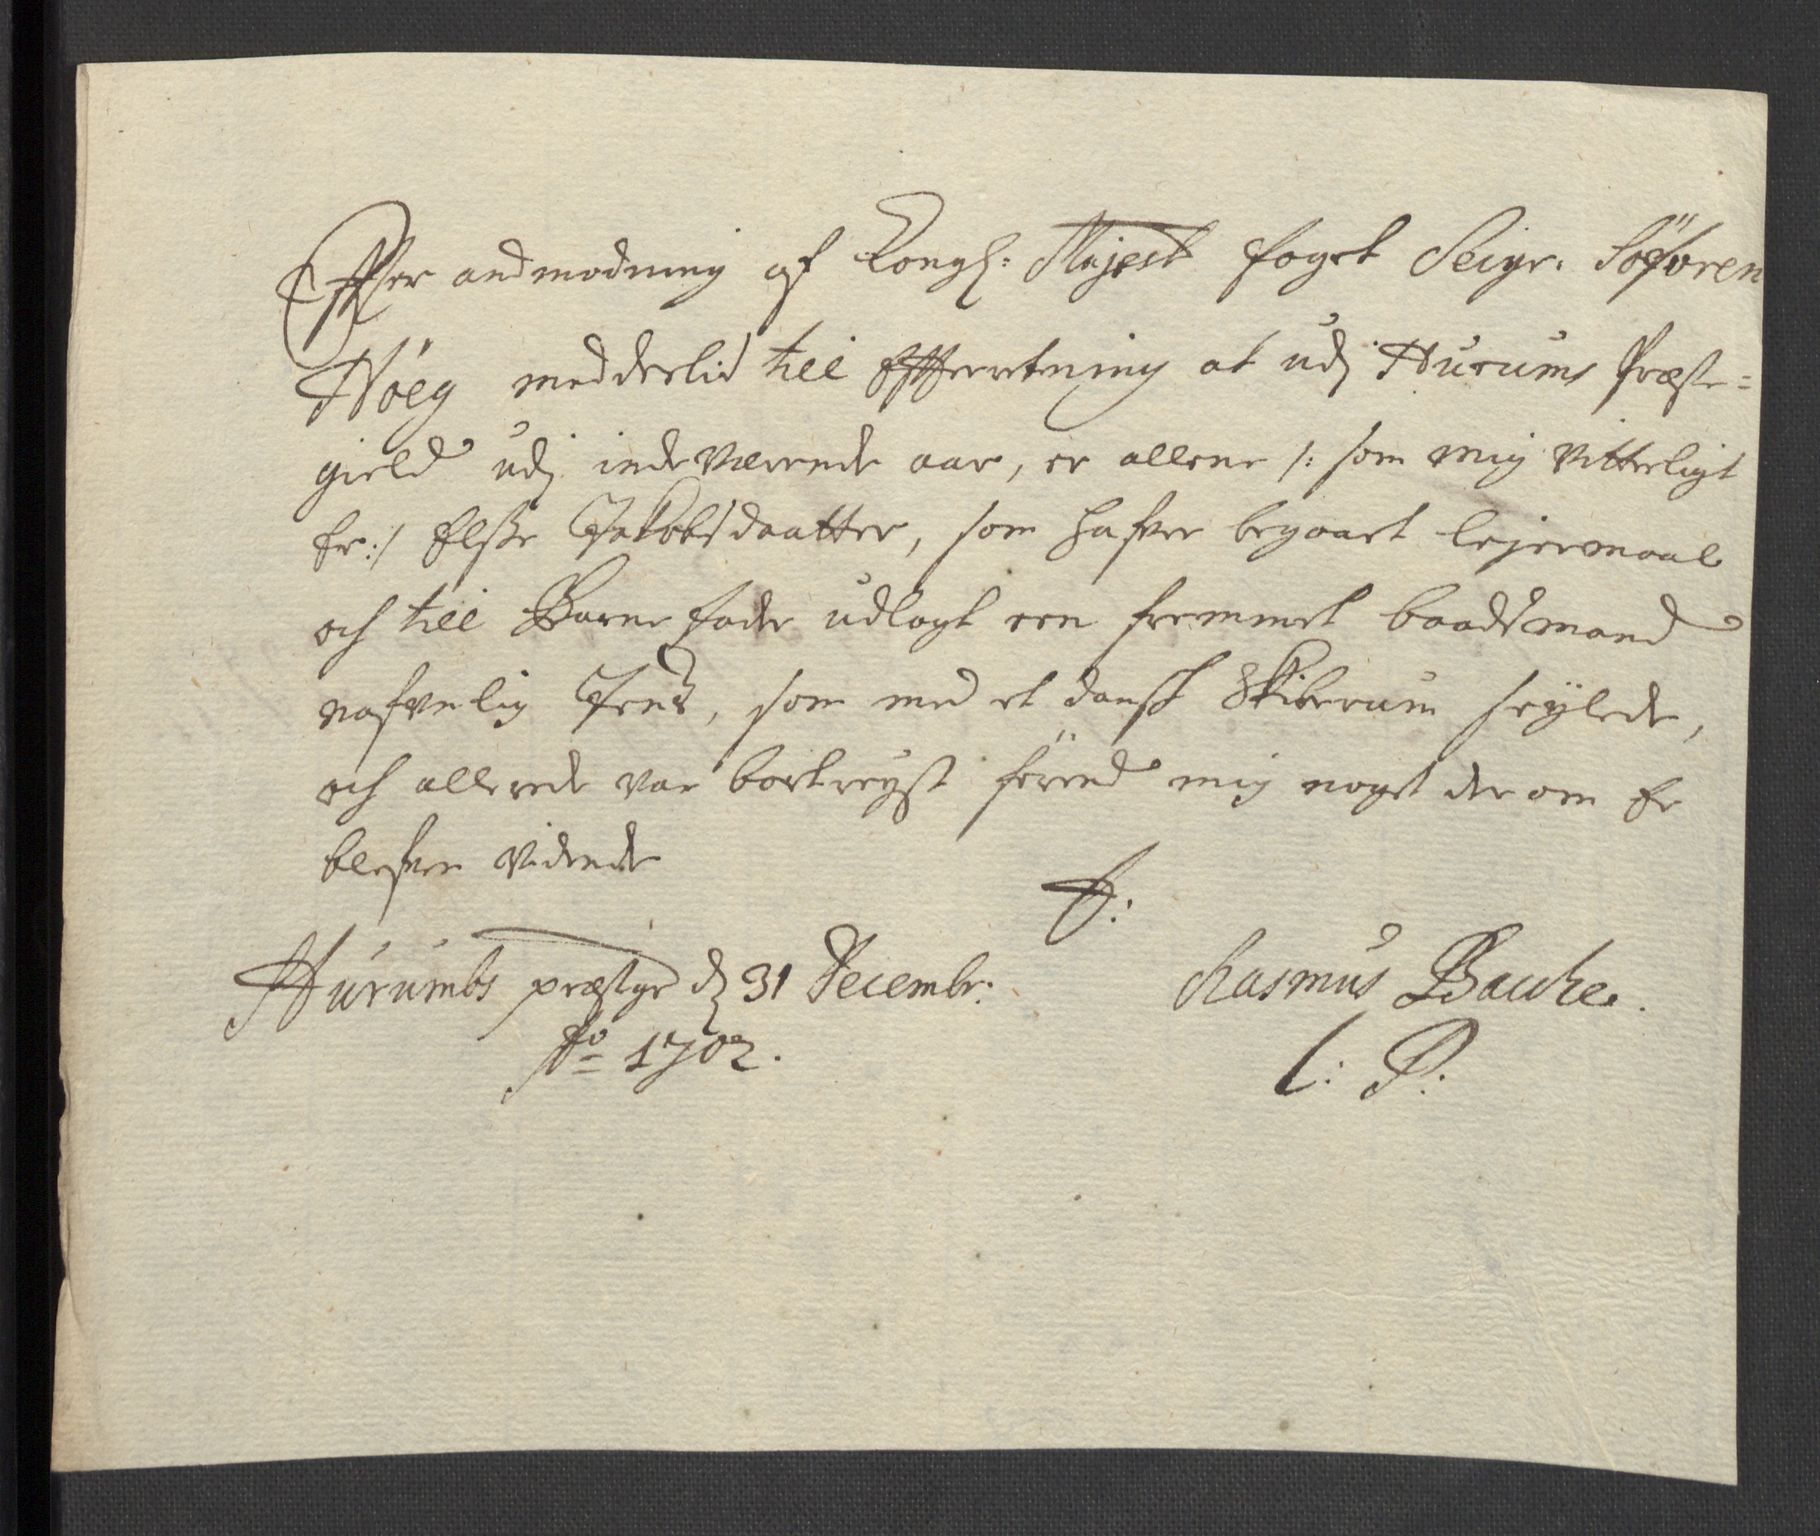 Effter andmodning af Kongl: Majest foget Seigr. Söfvren
Höeg meddeelis till Effterretning at udj Hurums Præste=
gield udj indeværende aar, er allene /: som mig vitterligt
er :/ Elsse Jakobsdaatter, som hafver begaaet lejermaal
och till Barnefader udlagt een fremmet baadsmand
nafnlig Jens, som med et dansk Skiberum seÿlede,
och allerede var bortreyst förend mig noget der om er
blefven vidende
Hurumbs præstge d 31 Decembr:
Ao 1702.
Rasmus Bauhe.